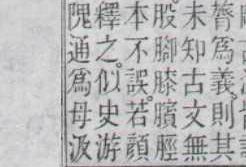 爲義則其
未知古文無
股脚膝臏脛
本不誤若顔
釋之似史游
隗通爲母汲